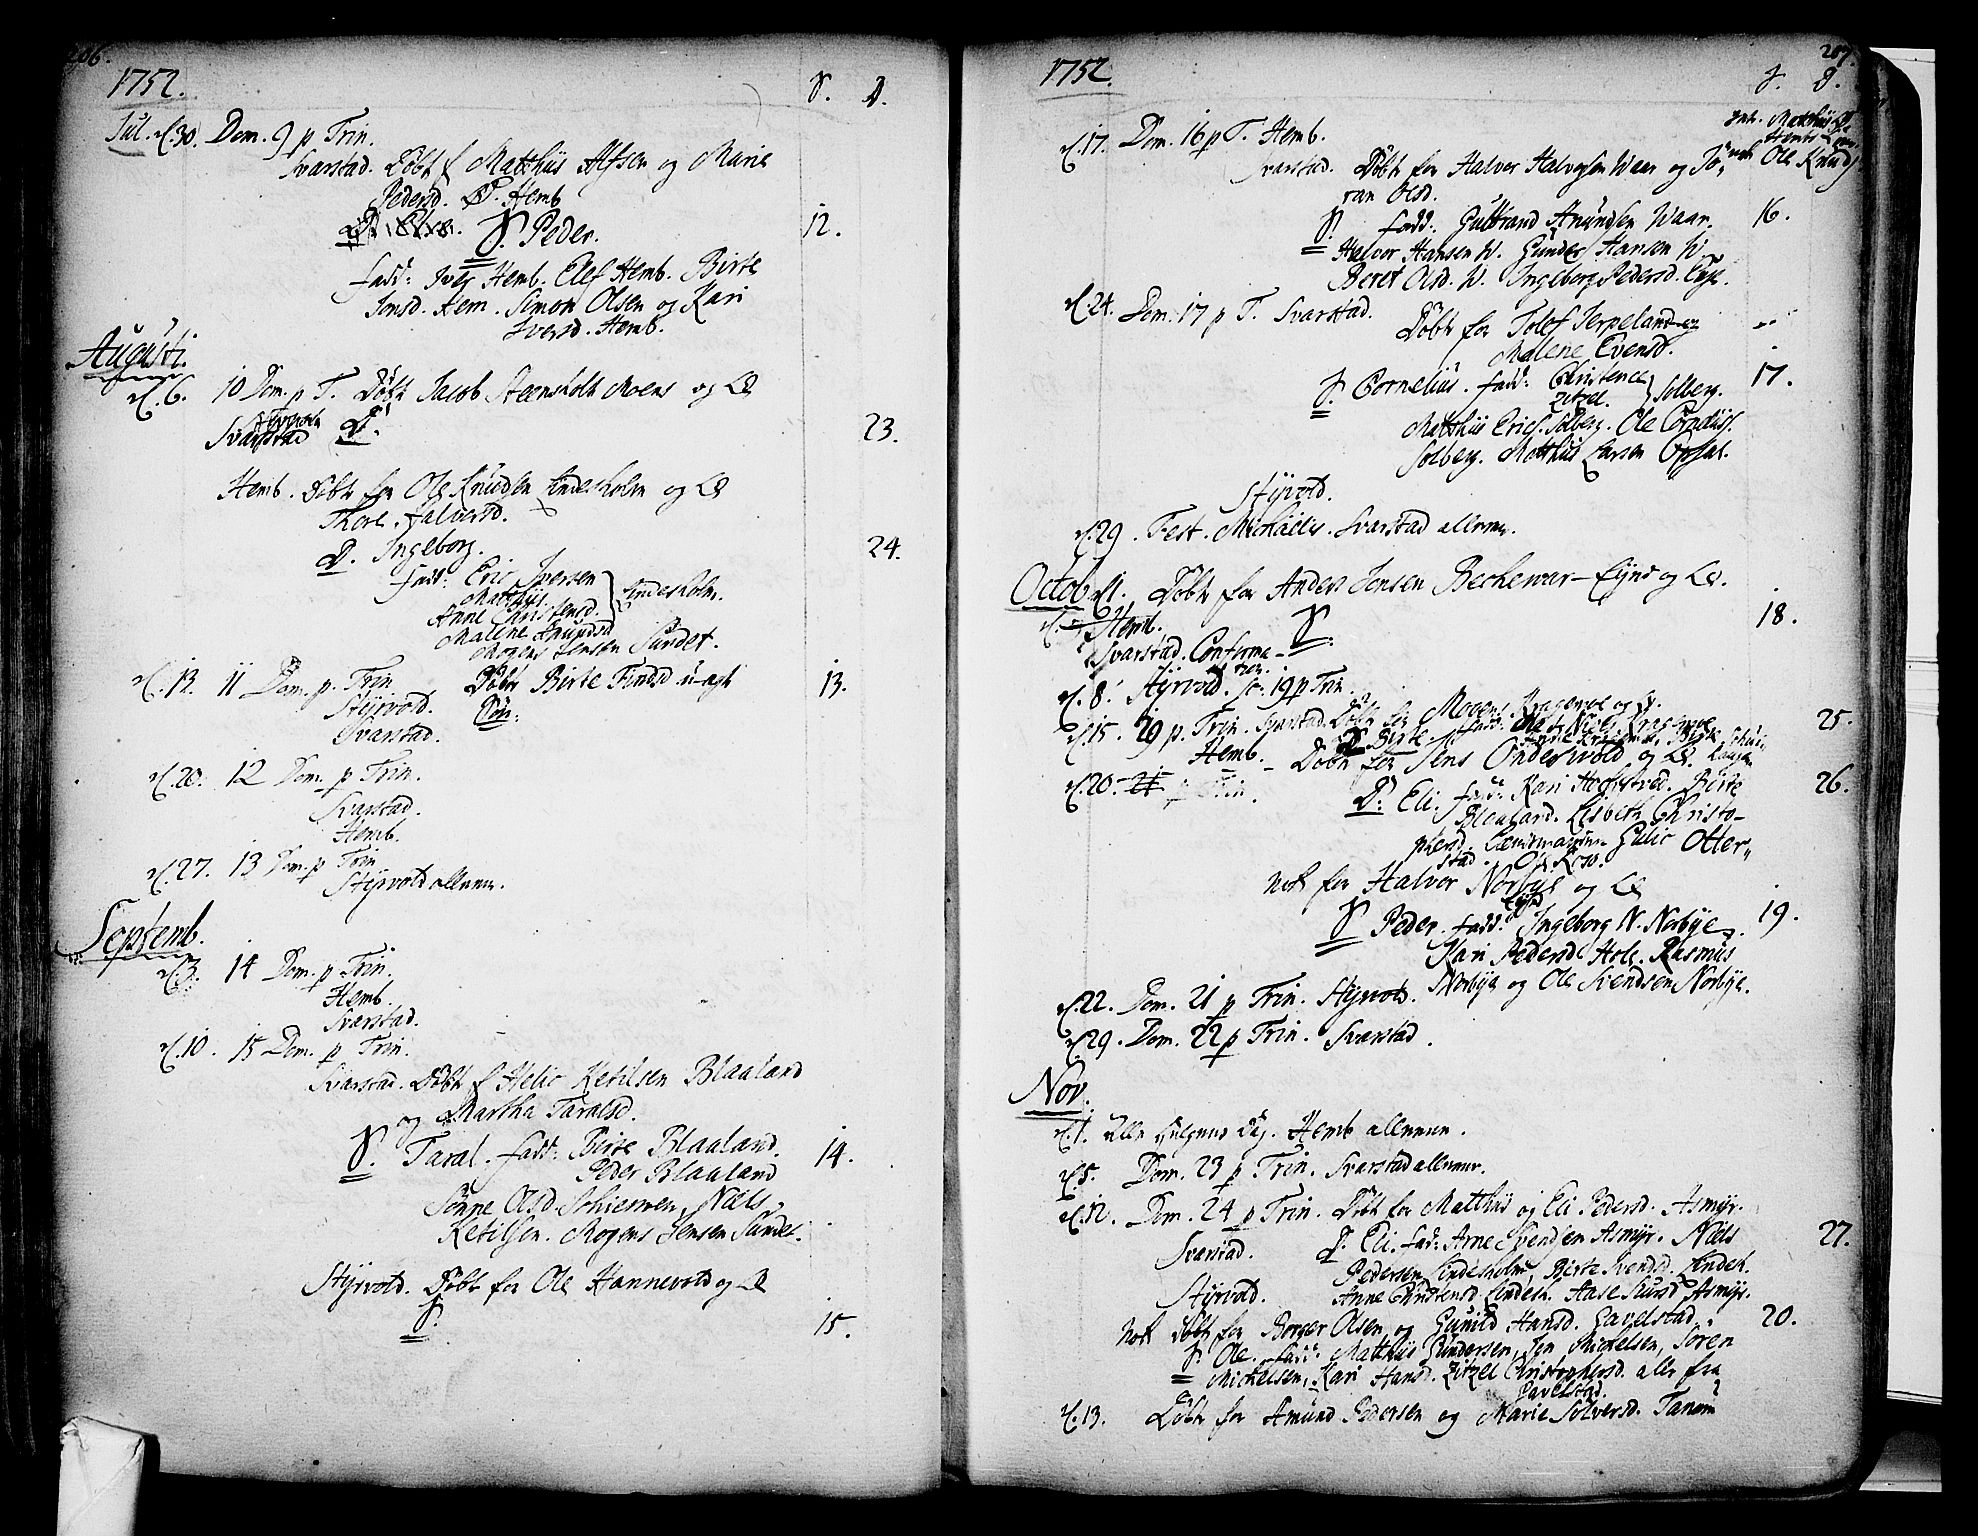 206.
1752.
S. D.
Jul. d. 30. Dom. 9 p Trin.
Svarstad. Döbt f Matthiis Alfsen og Marie
Pedersd. Hemb
S. Peder. 12.
fadd: Iver Hemb. Elef Hemb. Birte
Jensd. Hem. Simon Olsen og Kari
Iversd. Hemb.
Augusti.
d. 6. 10 Dom. p T. Döbt Jacob Steensholt Moens og
Svarstad D. 23.
Hemb. Döbt for Ole Knudsen Lindesholm og
Thore Halversd.
D. Ingeborg. 24.
fadd: Eric Iversen
Matthiis
Anne Christensd. Lindesholm.
Malene Amundsd
Mogens Jensen Sundet.
d. 13. 11 Dom. p. Trin Döbt Birte Findsd u-ægt 13.
Styrvold. Sön:
Svarstad.
d. 20. 12 Dom. p Trin.
Svarstad.
Hemb.
d. 27. 13 Dom. p Trin
Styrvold allene.
Septemb.
d. 3. 14 Dom. p Trin.
Hemb.
Svarstad.
d. 10. 15 Dom. p Trin.
Svarstad. Döbt f Helie Ketilsen Blaaland
og Martha Taralsd.
S. Taral. fadd: Birte Blaaland. 14.
Peder Blaaland
Sönne Olsd. Niels
Ketilsen. Mogens Jensen Sundet.
Styrvold. Döbt for Ole Hannevold og
S. 15.
207.
1752.
S. D.
Matthiis
Hemb
Ole Knuds
d. 17. Dom. 16 p T. Hemb.
Svarstad. Döbt for Halvor Halvorsen Waar og Jö-
ran Olsd.
S. fadd: Guttrand Amundsen Waar. 16.
Halvor Hansen W. Gunder Hansen W
Beret Olsd. W. Ingeborg Pedersd. Eeje.
d. 24. Dom. 17 p T. Svarstad.
Döbt for Tolef Serpeland og
Malene Evensd.
S. Cornelius. fadd: Christence 17.
Zitzel. Solberg.
Matthiis Erics. Solberg. Ole Corneliiss.
Solberg. Matthiis Larsen Opsal.
Styrvold.
d. 29. Fest. Michaelis. Svarstad allene.
Octob. d. 1. Döbt for Anders Jensen Bechewar-Eynd og
Hemb. S. 18.
Svarstad. Confirma-
tion
d. 8. Styrvold. 19 p Trin.
d. 15. 20 p. Trin. Svarstad. Döbt for Mogens Kragenoe og
D. Birte. fadd: Niels Kragenoe 25.
Hemb. Döbt for Jens Ondervold og
d. 20. 21 p Trin. D. Eli. fadd: Kari Birte 26.
Blaaland. Lisbeth Christo-
phersd. Gulic Otter-
stad.
Nok for Halvor Norbye og
S. Peder. fadd: Ingeborg N. Norbye. 19.
Kari Pedersd Hole. Rasmus
Norbye og Ole Svendsen Norbye.
d. 22. Dom. 21 p Trin. Styrvold.
d. 29. Dom. 22 p Trin. Svarstad.
Nov.
d. 1. Alle Helgens Dag. Hemb allene.
d. 5. Dom. 23 p Trin. Svarstad allene.
d. 12. Dom. 24 p Trin. Döbt for Matthiis og Eli Pedersd. Asmyr.
Svarstad. D. Eli. fad: Arne Svendsen Asmyr. Niels 27.
Pedersen Lindesholm Birte Svendsd. Lindesh.
Styrvold. Anne Christensd. Lindesh. Aase Asmyr.
Nok döbt for Borger Olsen og Gunild Hansd. Gavelstad. 20.
S. Ole. fadd: Matthiis Gundersen, Jen Mickelsen, Sören
Mickelsen, Kari Hansd. Zitzel Christophersd. alle fra
Gavelstad.
d. 13. Döbt for Amund Pedersen og Marie Solversd. Tanum